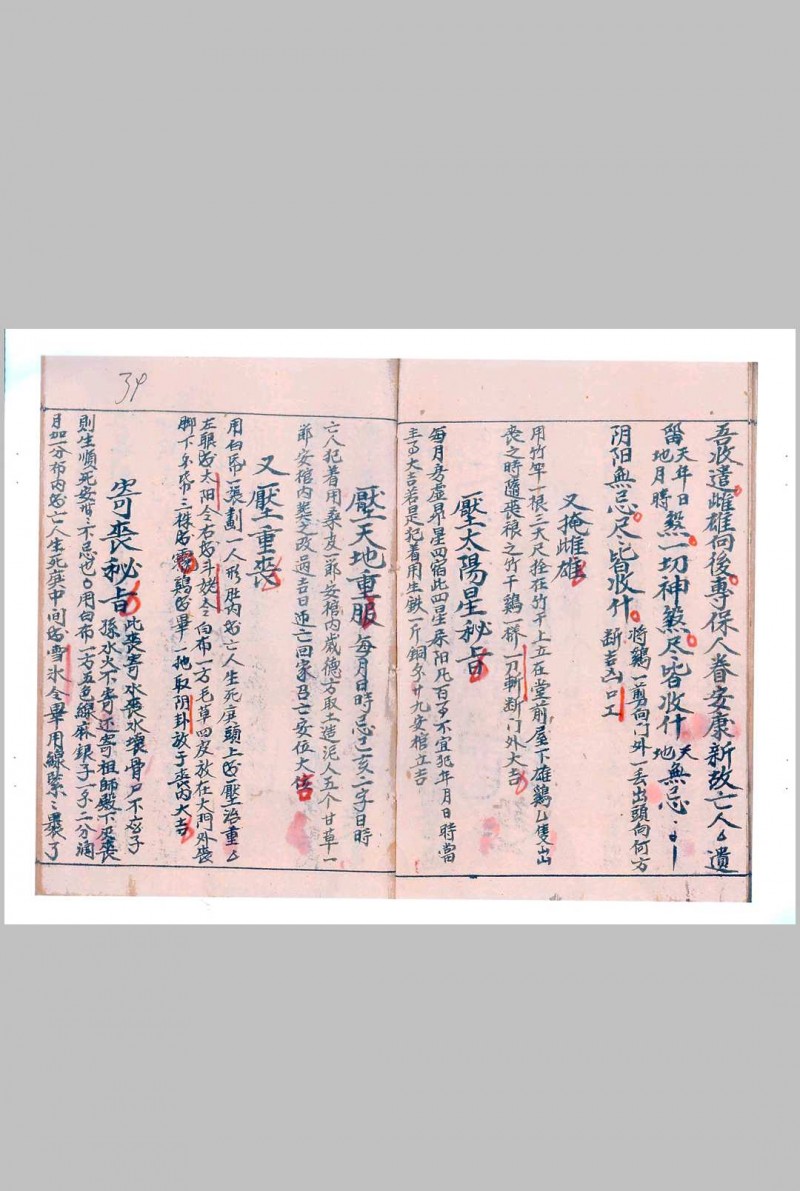 吾收遣雌雄何後專保人眷安康新故亡人厶遺
留天年日地月時煞一切神煞尽皆收什天地無忌
阴阳無忌尽皆收什 将鷄一剪向门外一丢出頭向何方
断吉凶口工
又掩雌雄
用竹竿一根三丈尺拴在竹干上立在堂前屋下雄鷄乙隻出
丧之時隨丧根之竹干鷄一群一刀斬断门外大吉
壓太陽星秘旨
每月房虚昴星四宿此四星屬阳凡百事不宜犯年月日時當
主大吉若是犯着用生鉄一斤銅錢十九安棺立吉
34
壓天地重服 每月日時忌己亥二字日時
亡人犯着用桑皮一節安棺内歲德方取土造泥人五个甘草一
節安棺内葬之改過吉日迎亡回家召亡安位大吉
又壓重丧
用白帋一張劃一人形肚内亡人生死庚頭上壓治重厶
左眼太阳令右斗姥令白布一方毛草四皮放在大門外丧
脚下帋三株鷄畢一地取阴卦放于丧的大吉
寄丧秘旨 此丧寄水丧水壞骨尸不安子
孫水火不寄還寄祖師殿下丧
則生順死安無忌也用白布一方五色線麻銀子一錢二分潤
月加一分布内亡人生死庚中间雪水令畢用線緊緊裹了